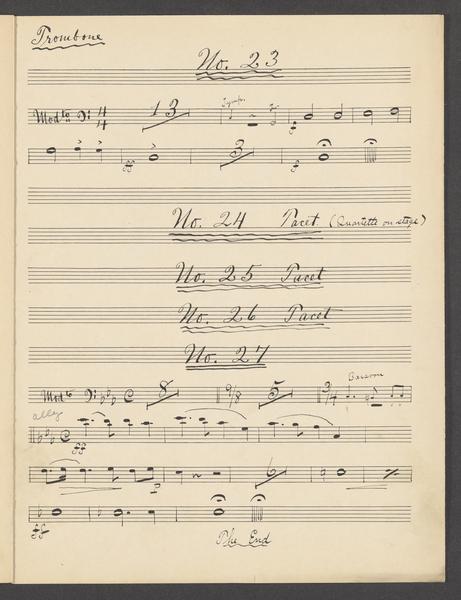 Trombone
No. 23
Modto 4/4 13
ff 3
No. 24 Tacet (Quartette on stage)
No. 25 Tacet
No. 26 Tacet
No. 27
Modto C 8 9/8 5 3/4 Bassoon
allo
C
ff
6
ff
The End